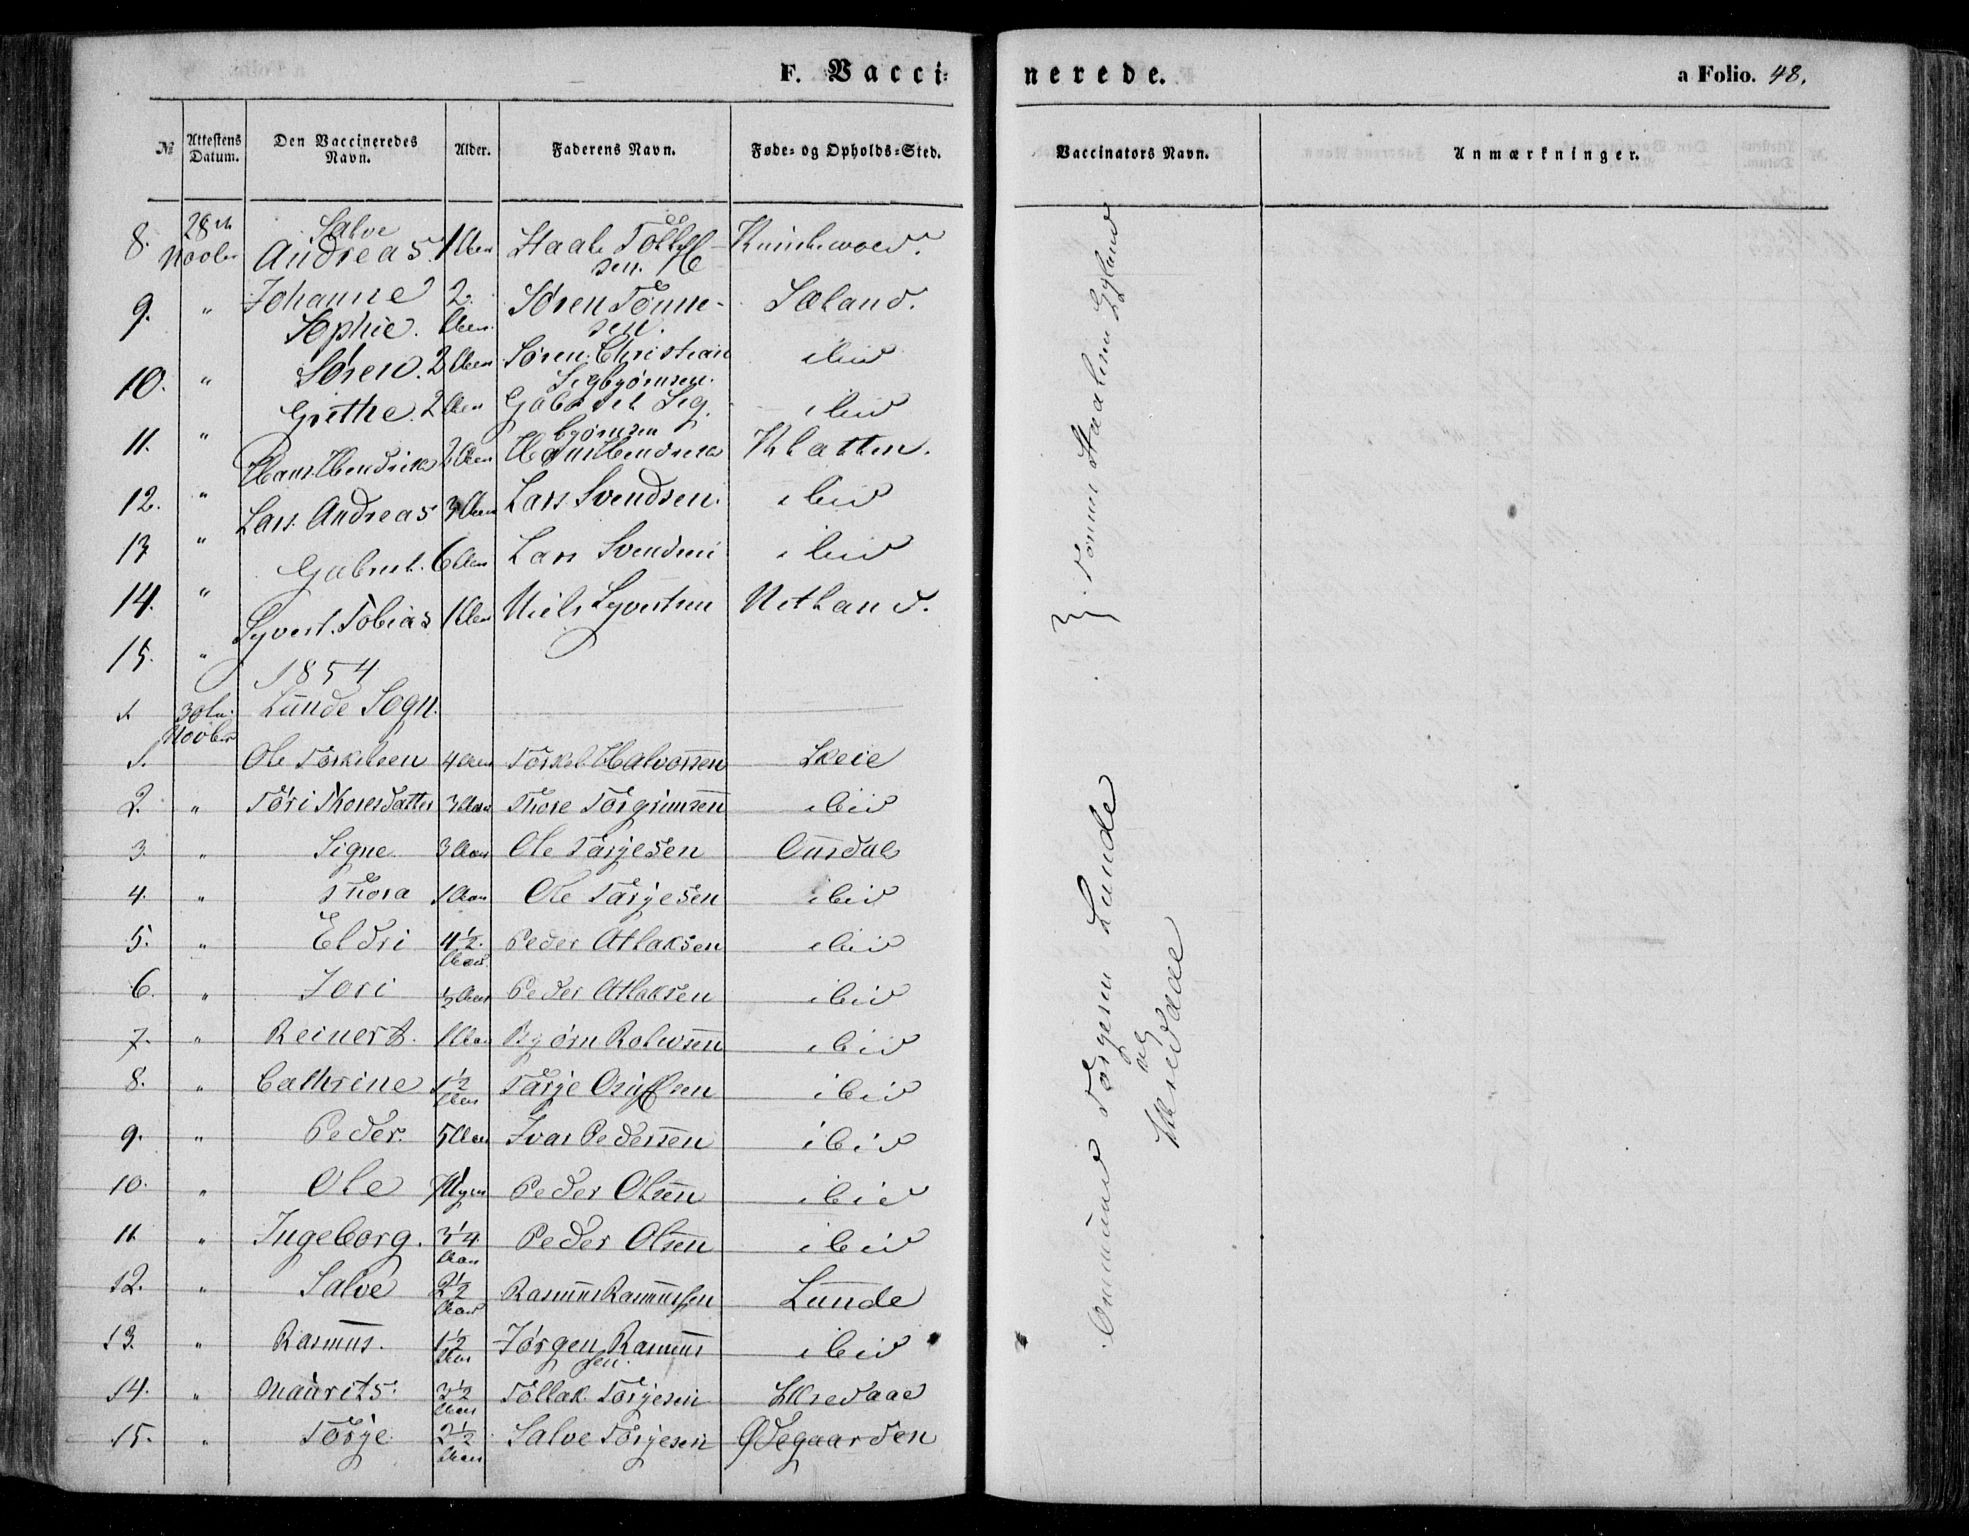 F. Vacci-
nerede.
a Folio. 48.
№
Attestens Datum.
Den Vaccineredes Navn.
Alder.
Faderens Navn.
Føde- og Opholds-Sted.
Vaccinators Navn.
Anmærkninger.
8. 28de Novbr Salve Andreas. 1 Aar
9. " Johanne Sophie. 2 Aar. Søren Tønnesen. Sæland.
10. " Søren. 2 Aar Søren Christian Sigbjørnsen. ibid
11. " Grethe. 2 Aar Gabriel Sigbjørnsen ibid
12. " Hans Hendrik 2 Aar Hans Hendrik Klatten.
13 " Lars Andreas 3 Aar Lars Svendsen. ibid
14. " Gabriel. 6 Aar Lars Svendsen ibid
15. " Syvert Tobias 1 Aar Niels Syvertsen Netland.
1854
Lunde Sogn.
1. 30te Novber Ole Torkelsen 4 Aar Torkel Halvorsen Skeie
2. " Tori Thoresdatter 3 Aar Thore Torgrimsen ibid
3. " Signe 3 Aar Ole Tarjesen Oursdal
4. " Thora 1 Aar Ole Tarjesen ibid
5. " Eldri 4½ Aar Peder Atlaksen ibid
6. " Jori ½ Aar Peder Atlaksen ibid
7. " Reinert. 1 Aar Bjørn ibid
8. " Cathrine 1½ Aar Tarje ibid
9. " Peder. 5 Aar Ivar Pedersen ibid
10. " Ole Peder Olsen ibid
11. " Ingeborg. Aar Peder Olsen ibid
12. " Salve 2½ Aar Rasmus Rasmussen Lunde
13. " Rasmus. 1½ Aar Jørgen Rasmussen. ibid
14. " Maurits. 3½ Aar Tollak Torjesen Hæredaae
15. " Torje 2½ Aar Salve Torjesen Ødegaarden
Tønnes Staalesen Gyland
Ommund Torgersen Lunde
og
Hæredaae